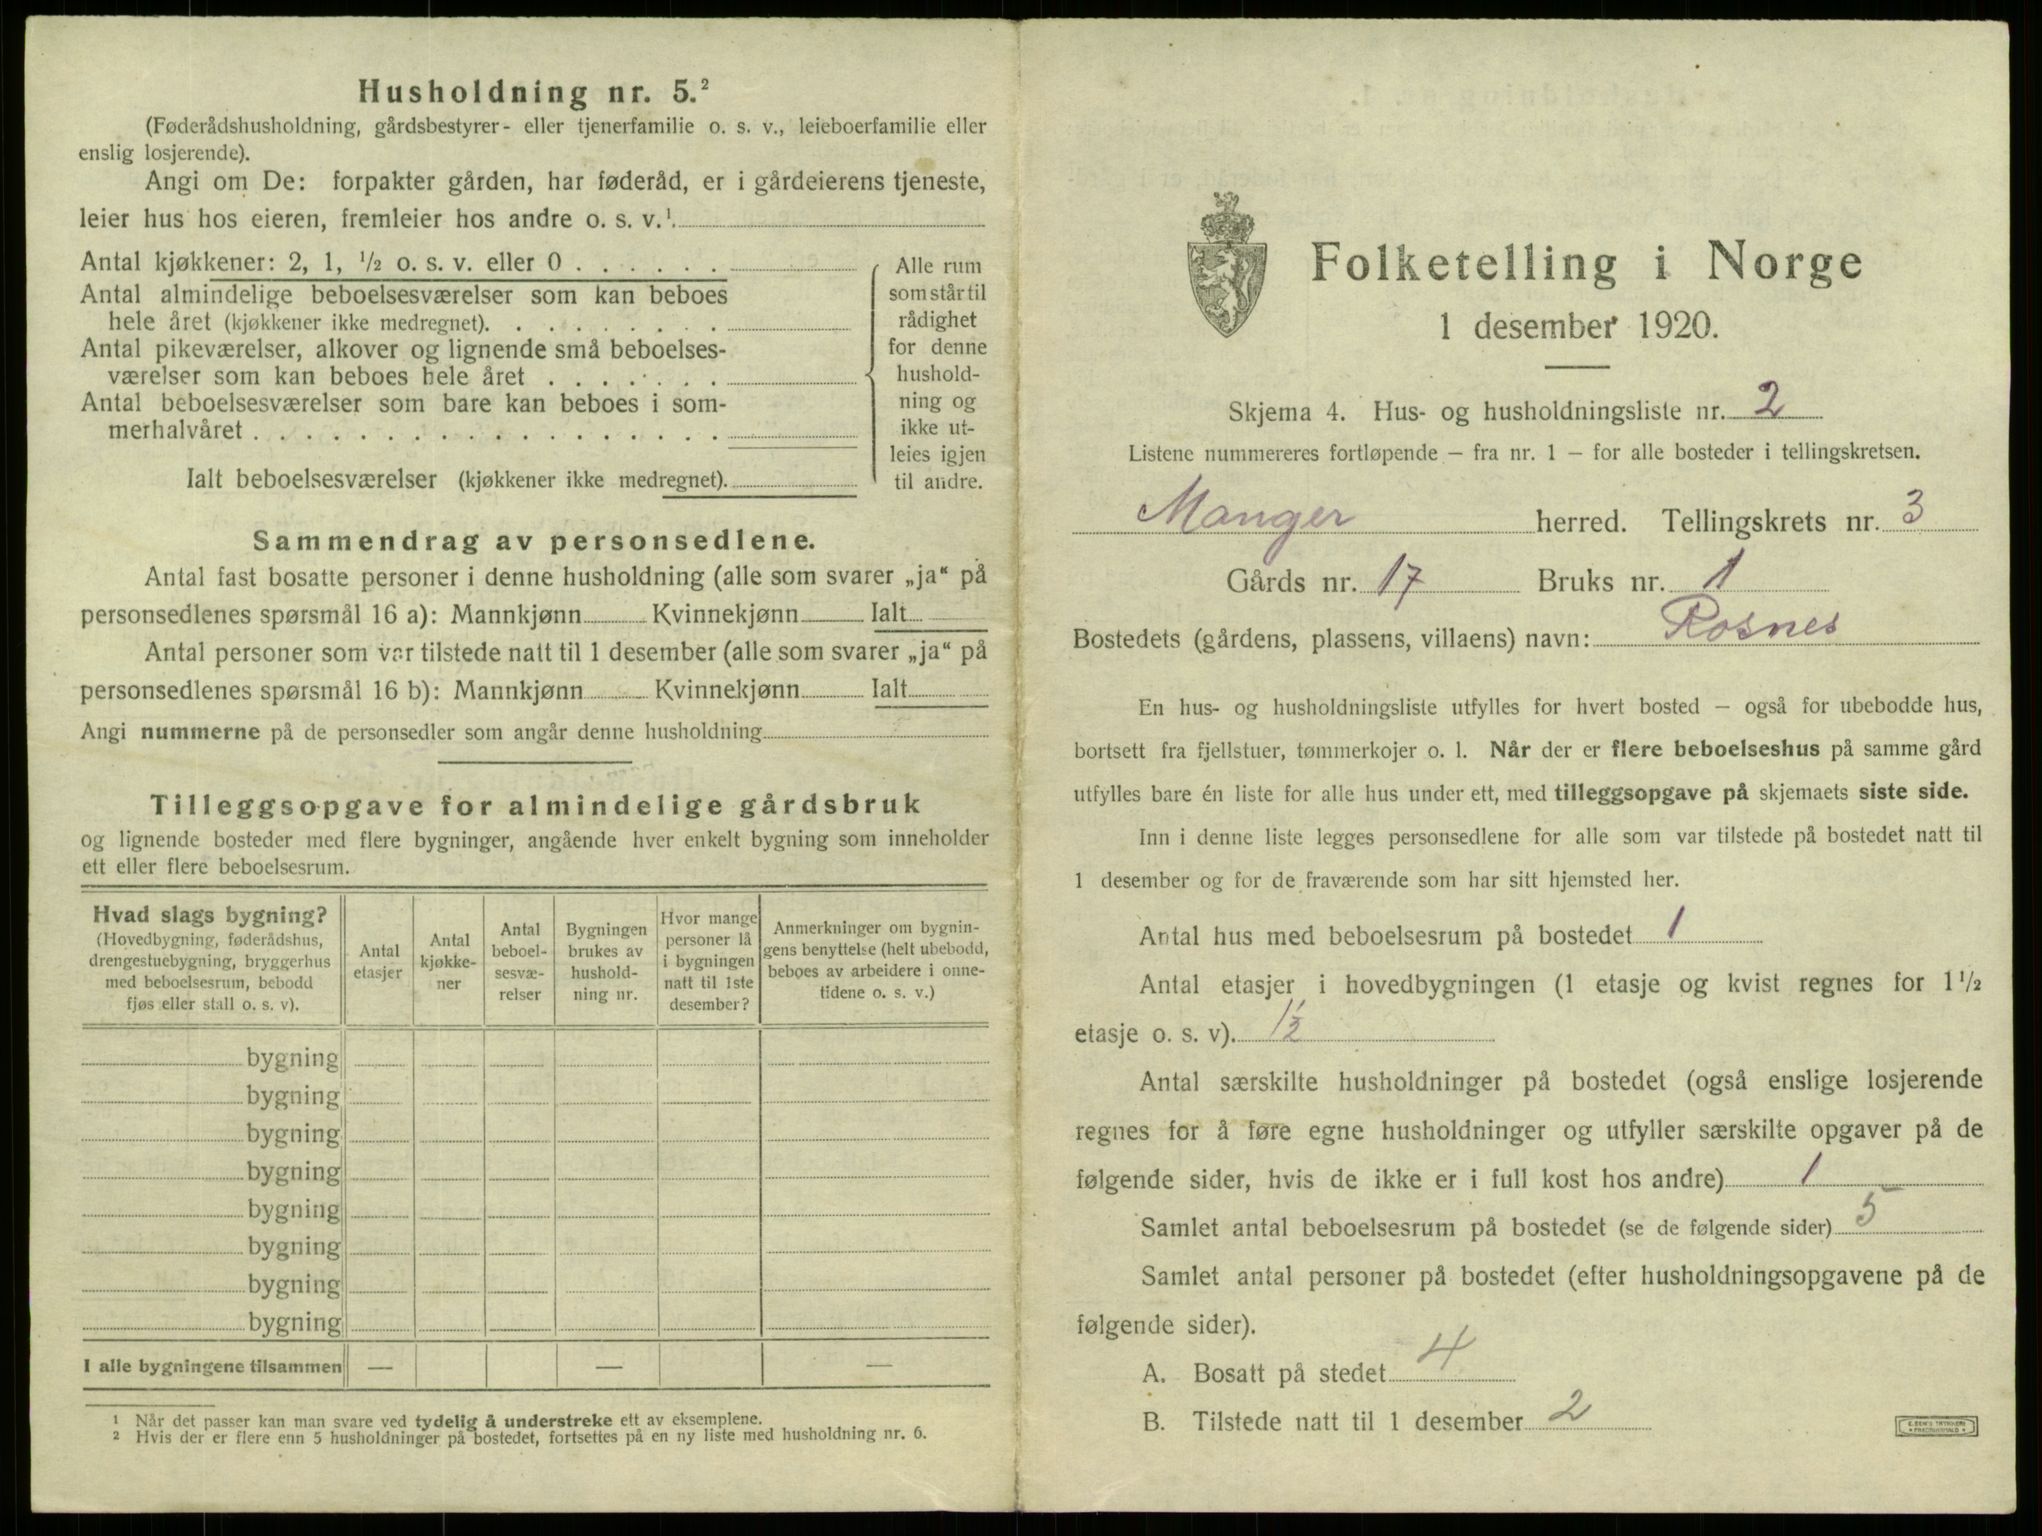 Husholdning nr. 5.²
(Føderådshusholdning, gårdsbestyrer- eller tjenerfamilie o. s. v., leieboerfamilie eller
enslig losjerende).
Angi om De: forpakter gården, har føderåd, er i gårdeierens tjeneste,
leier hus hos eieren, fremleier hos andre o. s. v.¹
Antal kjøkkener: 2, 1, ½ o. s. v. eller 0 . . . . . .
Antal almindelige beboelsesværelser som kan beboes
hele året (kjøkkener ikke medregnet). . . . . . . . .
Antal pikeværelser, alkover og lignende små beboelses-
værelser som kan beboes hele året . . . . . . .
Antal beboelsesværelser som bare kan beboes i som-
merhalvåret . . . . . . . . . . . . . . . . . .
Ialt beboelsesværelser (kjøkkener ikke medregnet).
Alle rum
som står til
rådighet
for denne
hushold-
ning og
ikke ut-
leies igjen
til andre.
Sammendrag av personsedlene.
Antal fast bosatte personer i denne husholdning (alle som svarer „ja“ på
personsedlenes spørsmål 16 a): Mannkjønn Kvinnekjønn Ialt
Antal personer som var tilstede natt til 1 desember (alle som svarer „ja“ på
personsedlenes spørsmål 16 b): Mannkjønn Kvinnekjønn Ialt
Angi nummerne på de personsedler som angår denne husholdning
Tilleggsopgave for almindelige gårdsbruk
og lignende bosteder med flere bygninger, angående hver enkelt bygning som inneholder
ett eller flere beboelsesrum.
Hvad slags bygning?
(Hovedbygning, føderådshus,
drengestuebygning, bryggerhus
med beboelsesrum, bebodd
fjøs eller stall o. s. v).
Antal
etasjer
Antal
kjøkke-
ner
Antal
beboel-
sesvæ-
relser
Bygningen
brukes av
hushold-
ning nr.
Hvor mange
personer lå
i bygningen
natt til 1ste
desember?
Anmerkninger om bygnin-
gens benyttelse (helt ubebodd,
beboes av arbeidere i onne-
tidene o. s. v.)
bygning
bygning
bygning
bygning
bygning
bygning
bygning
bygning
I alle bygningene tilsammen — — —
¹ Når det passer kan man svare ved tydelig å understreke ett av eksemplene.
² Hvis der er flere enn 5 husholdninger på bostedet, fortsettes på en ny liste med husholdning nr. 6.
Folketelling i Norge
1 desember 1920.
Skjema 4. Hus- og husholdningsliste nr. 2
Listene nummereres fortløpende – fra nr. 1 – for alle bosteder i tellingskretsen.
Manger herred. Tellingskrets nr. 3
Gårds nr. 17 Bruks nr. 1
Bostedets (gårdens, plassens, villaens) navn: Rosnes
En hus- og husholdningsliste utfylles for hvert bosted – også for ubebodde hus,
bortsett fra fjellstuer, tømmerkojer o. l. Når der er flere beboelseshus på samme gård
utfylles bare én liste for alle hus under ett, med tilleggsopgave på skjemaets siste side.
Inn i denne liste legges personsedlene for alle som var tilstede på bostedet natt til
1 desember og for de fraværende som har sitt hjemsted her.
Antal hus med beboelsesrum på bostedet 1
Antal etasjer i hovedbygningen (1 etasje og kvist regnes for 1½
etasje o. s. v). 1½
Antal særskilte husholdninger på bostedet (også enslige losjerende
regnes for å føre egne husholdninger og utfyller særskilte opgaver på de
følgende sider, hvis de ikke er i full kost hos andre) 1
Samlet antal beboelsesrum på bostedet (se de følgende sider) 5
Samlet antal personer på bostedet (efter husholdningsopgavene på de
følgende sider).
A. Bosatt på stedet 4
B. Tilstede natt til 1 desember 2